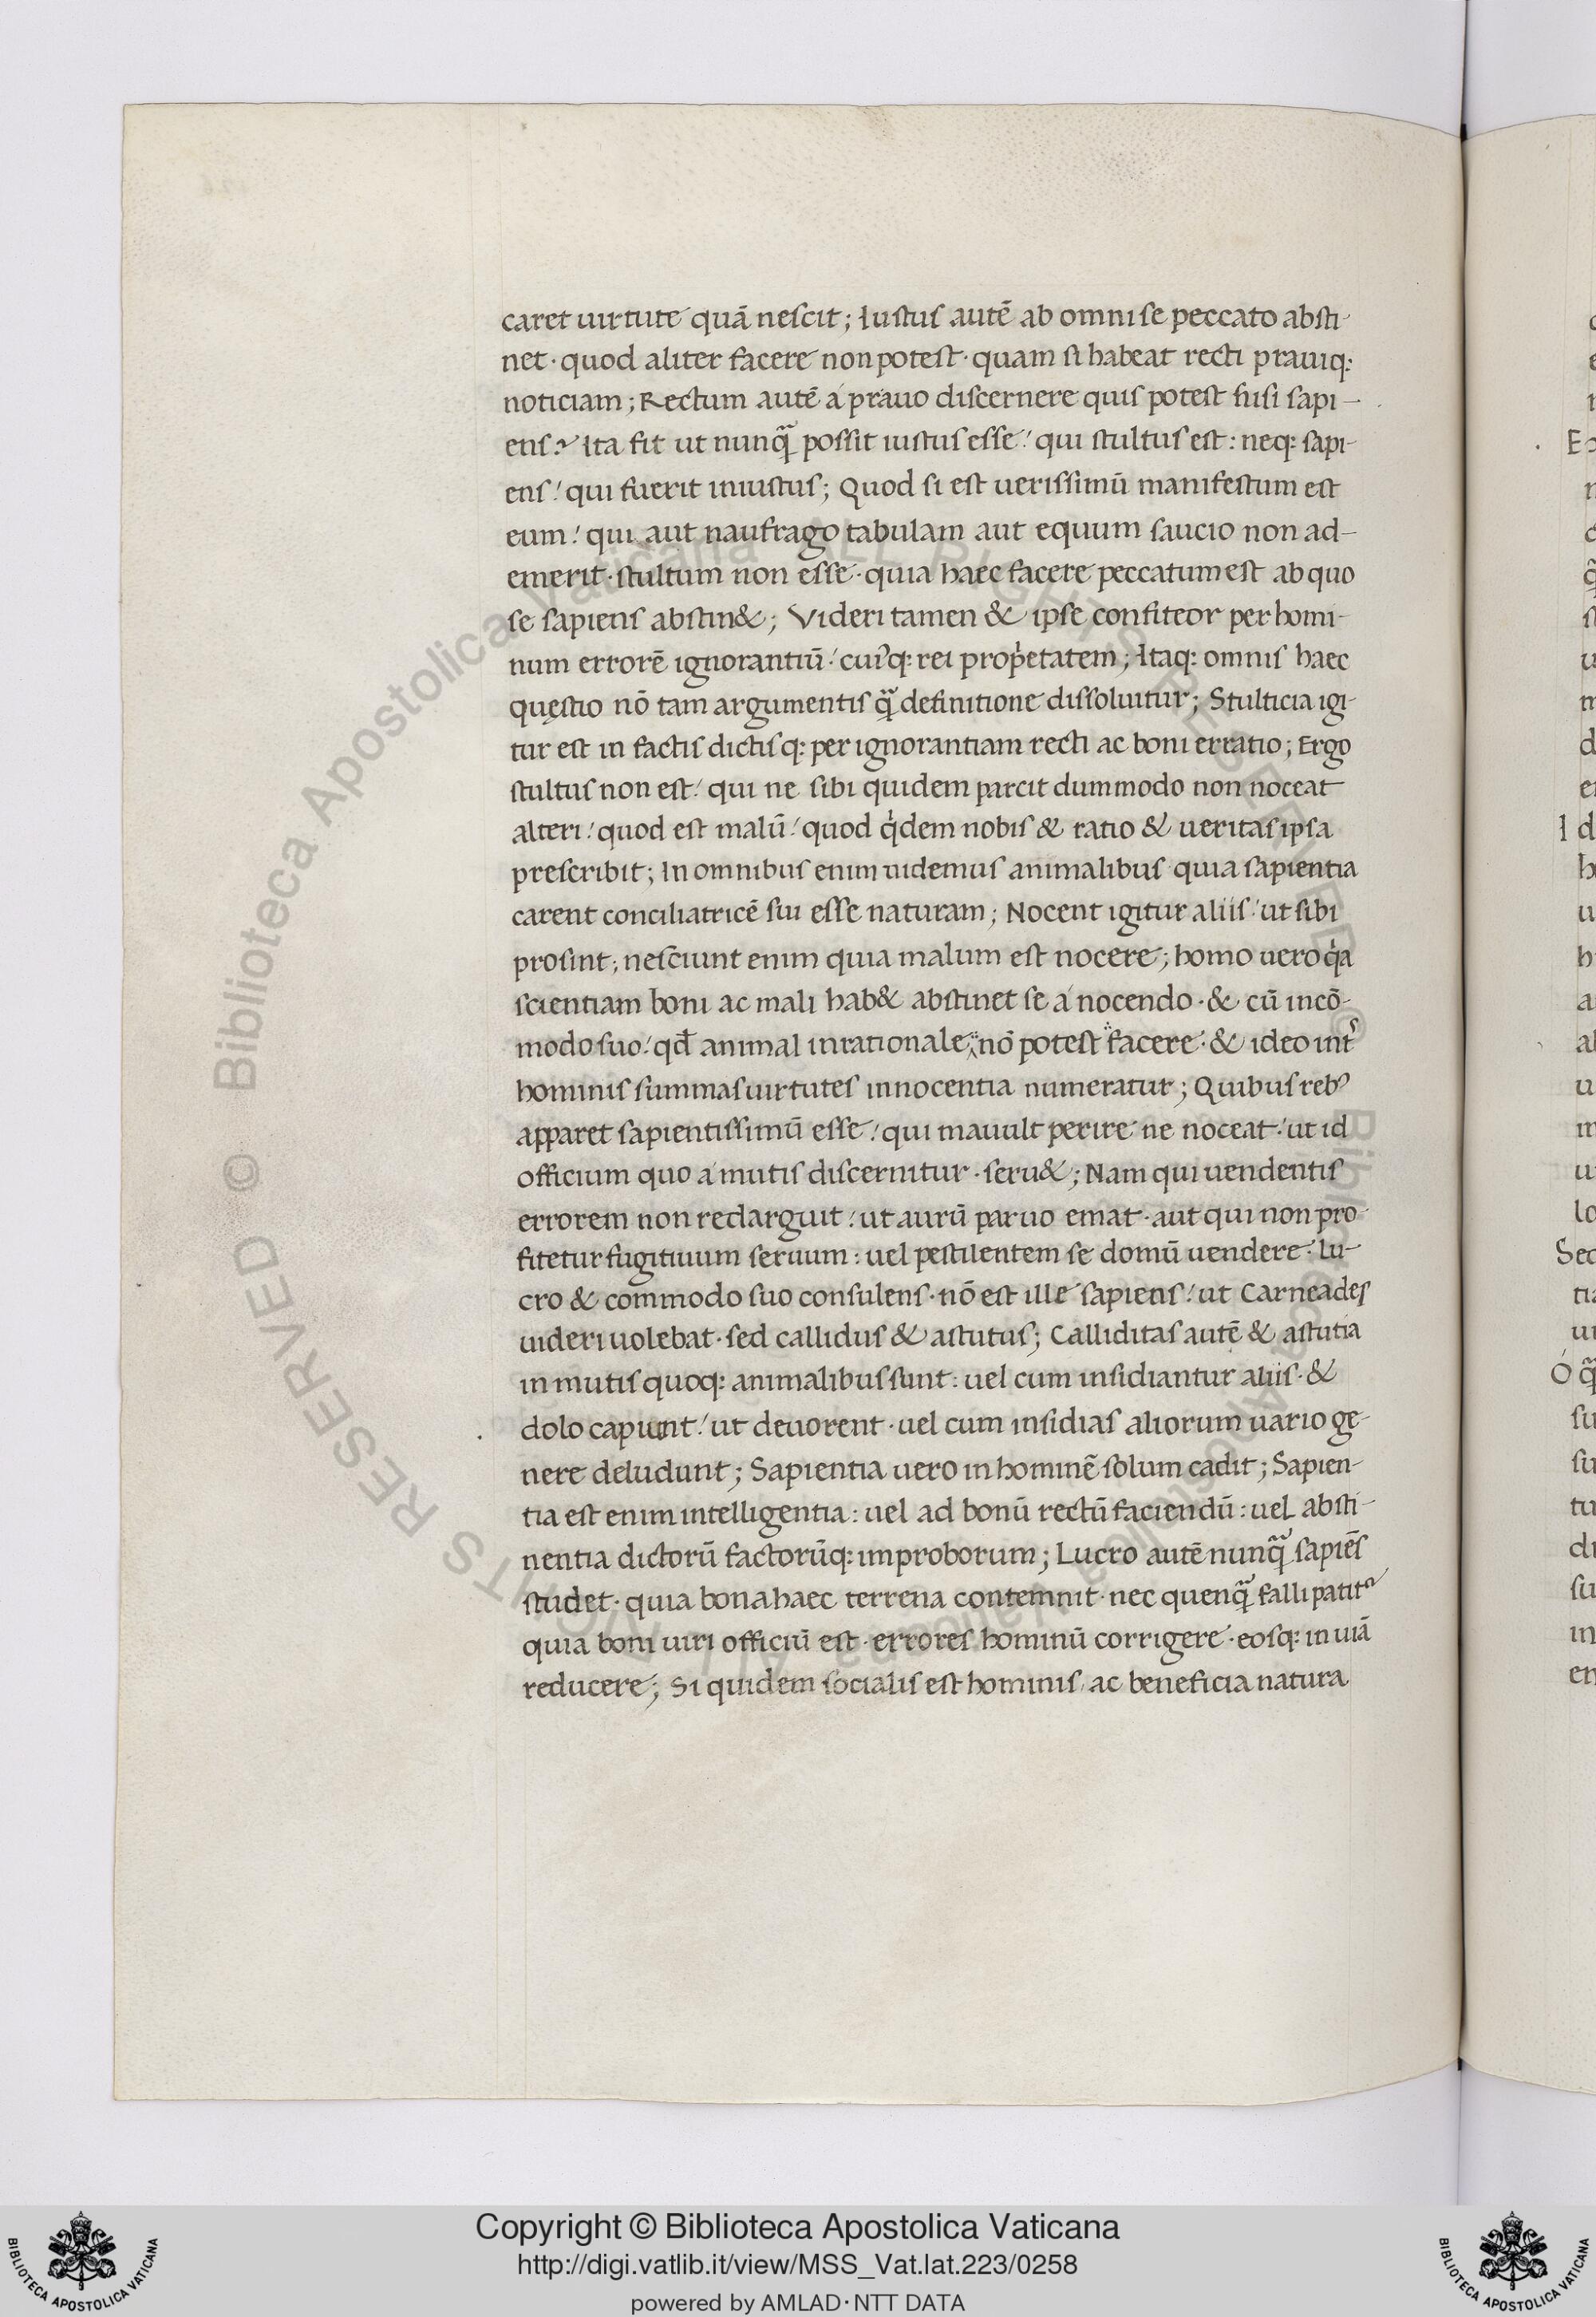 caret uirtute quā nescit; Iustus autē ab omni se peccato absti-
net · quod aliter facere non potest · quam si habeat recti prauiq:
noticiam; Rectum autē á prauo discernere quis potest nisi sapi-
ens? Ita fit ut nunq̃ possit iustus esse! qui stultus est: neq: sapi-
ens! qui fuerit iniustus; Quod si est uerissimū manifestum est
eum! qui aut naufrago tabulam aut equum saucio non ad-
emerit · stultum non esse · quia haec facere peccatum est ab quo
se sapiens abstin&; Videri tamen & ipse confiteor per homi-
num errorē ignorantiū! cuiꝰq: rei propͥetatem; Itaq: omnis haec
quęstio nō tam argumentis q̃ definitione dissoluitur; Stulticia igi-
tur est in factis dictisq: per ignorantiam recti ac boni erratio; Ergo
stultus non est! qui ne sibi quidem parcit dummodo non noceat
alteri! quod est malū! quod qͥdem nobis & ratio & ueritas ipsa
prescribit; In omnibus enim uidemus animalibus quia sapientia
carent conciliatricē sui esse naturam; Nocent igitur aliis! ut sibi
prosint; nesciunt enim quia malum est nocere; homo uero qͥa
scientiam boni ac mali hab& abstinet se á nocendo · & cū incō-
modo suo! qđ animal inrationale nō potest facere · & ideo int̃
hominis summas uirtutes innocentia numeratur; Quibus rebꝰ
apparet sapientissimū esse! qui mauult perire ne noceat! ut id
officium quo á mutis discernitur · seru&; Nam qui uendentis
errorem non redarguit! ut aurū paruo emat · aut qui non pro-
fitetur fugitiuum seruum: uel pestilentem se domū uendere! lu-
cro & commodo suo consulens · nō est ille sapiens! ut Carneades
uideri uolebat · sed callidus & astutus; Calliditas autē & astutia
in mutis quoq: animalibus sunt: uel cum insidiantur aliis · &
dolo capiunt! ut deuorent · uel cum insidias aliorum uario ge-
nere deludunt; Sapientia uero in hominē solum cadit; Sapien-
tia est enim intelligentia: uel ad bonū rectū faciendū: uel absti-
nentia dictorū factorūq: improborum; Lucro autē nunq̃ sapiēs
studet · quia bona haec terrena contemnit · nec quenq̃ falli patit᷑
quia boni uiri officiū est · errores hominū corrigere · eosq: in uiā
reducere; Si quidem socialis est hominis ac beneficia natura
Copyright © Biblioteca Apostolica Vaticana
http://digi.vatlib.it/view/MSS_Vat.lat.223/0258
powered by AMLAD · NTT DATA
BIBLIOTECA APOSTOLICA VATICANA
BIBLIOTECA APOSTOLICA VATICANA